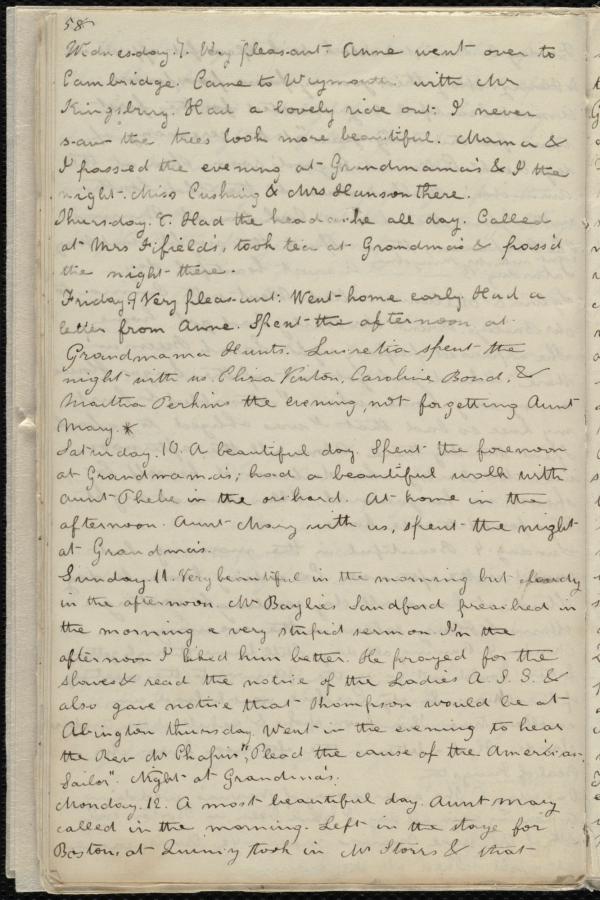 58
Wednesday. 7. Very pleasant. Anne went over to
Cambridge. Came to Weymouth with Mr
Kingsbury. Had a lovely ride out: I never
saw the trees look more beautiful. Mama &
I passed the evening at Grandmama's & I the
night. Miss Cushing & Mrs Hunson there.
Thursday. 8. Had the headache all day. Called
at Mrs Fifield's, took tea at Grandma's & pass'd
the night there.
Friday 9 Very pleasant: Went home early. Had a
letter from Anne. Spent the afternoon at
Grandmama Hunts. Lucretia spent the
night with us. Eliza Vinton, Caroline Bond, &
Martha Perkins the evening, not forgetting Aunt
Mary. *
Saturday. 10. A beautiful day. Spent the forenoon
at Grandmama's; had a beautiful walk with
aunt Phebe in the orchard. At home in the
afternoon. Aunt Mary with us, spent the night
at Grandma's.
Sunday. 11. Very beautiful in the morning but cloudy
in the afternoon. Mr Baylies Sandford preached in
the morning a very stupid sermon. I'n the
afternoon I liked him better. He prayed for the
slaves & read the notice of the Ladies A. S. S. &
also gave notice that Thompson would be at
Abington thursday. Went in the evening to hear
the Rev Mr Chapin "Plead the cause of the American
Sailor". Night at Grandma's.
Monday. 12. A most beautiful day. Aunt Mary
called in the morning. Left in the stage for
Boston, at Quincy took in Mr Storrs & that